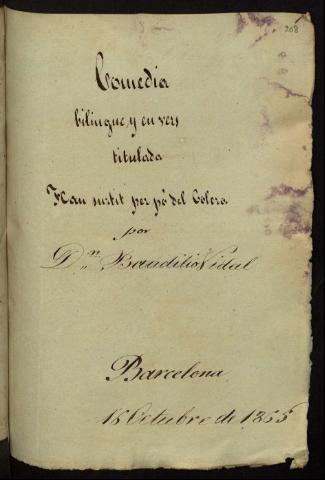 208
Comedia
bilingue, y en vers
titulada
Han surtit per pó del Colera
por
D.n Baudilio Vidal
Barcelona
16 Octubre de 1855